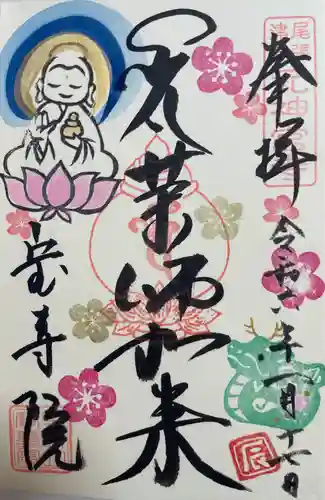 奉拝
令和六年一月十七日
薬師如来
宝寿院
尾張
辰